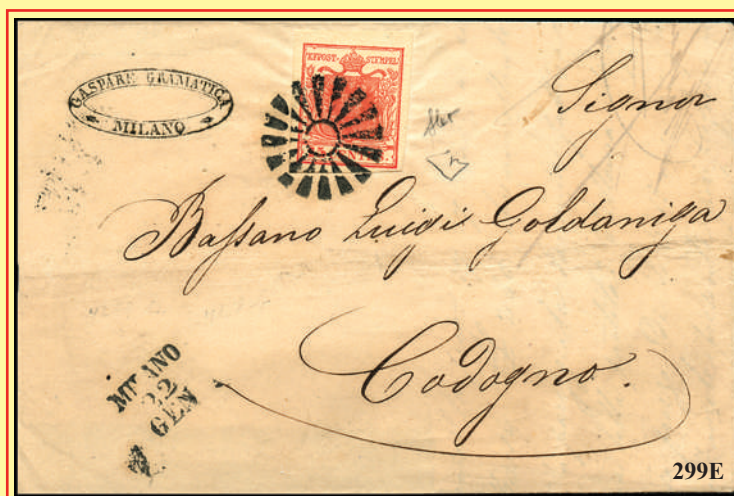 GASPARE GRAMATICA
MILANO
KKPOST-STEMPEL
Signor
Bassano Luigi Goldaniga
Codogno.
MILANO
22
GEN
299E